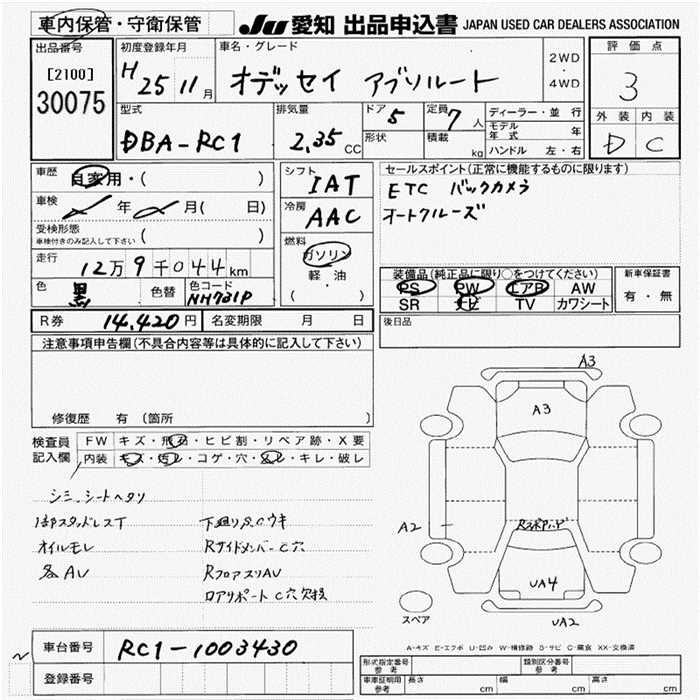 車内保管・守衛保管
JU 愛知 出品申込書 JAPAN USED CAR DEALERS ASSOCIATION
出品番号
[2100]
30075
初度登録年月
H25 11月
車名・グレード
オデッセイ アブソルート
2WD
・
4WD
評価点
3
外装 内装
D C
型式
DBA-RC1
排気量
2.35 CC
ドア
5
定員
7人
形状
積載
kg
ディーラー・並行
モデル年式 年
ハンドル 左・右
車歴
自家用・( )
車検
年 月( 日)
受検形態
車検付きのみ記入して下さい ( )
走行
12万9千044km
色
黒
色替
色コード
NH731P
シフト
IAT
冷房
AAC
燃料
ガソリン
軽油
( )
セールスポイント(正常に機能するものに限ります)
ETC バックカメラ
オートクルーズ
装備品(純正品に限り○をつけてください)
PS PW エアB AW
SR ナビ TV カワシート
新車保証書
有・無
R券 14,420円
名変期限 月 日
後日品
注意事項申告欄(不具合内容等は具体的に記入して下さい)
修復歴 有(箇所 )
検査員
記入欄
FW キズ・飛石・ヒビ割・リペア跡・X要
内装 キズ・汚レ・コゲ・穴・スレ・キレ・破レ
シミ、シートヘタリ
1部スタッドレスT
オイルモレ
各AU
下廻りS.Cウキ
RサイドメンバーC穴
RフロアスリAU
ロアサポートC穴欠損
A3
A3
A2
RスポアハゲU
UA4
UA2
スペア
A-キズ E-エクボ U-凹み W-補修跡 S-サビ C-腐食 XX-交換済
車台番号 RC1-1003430
登録番号
形式指定番号
参考
類別区分番号
参考
車庫証明用
参考
長さ cm
幅 cm
高さ cm